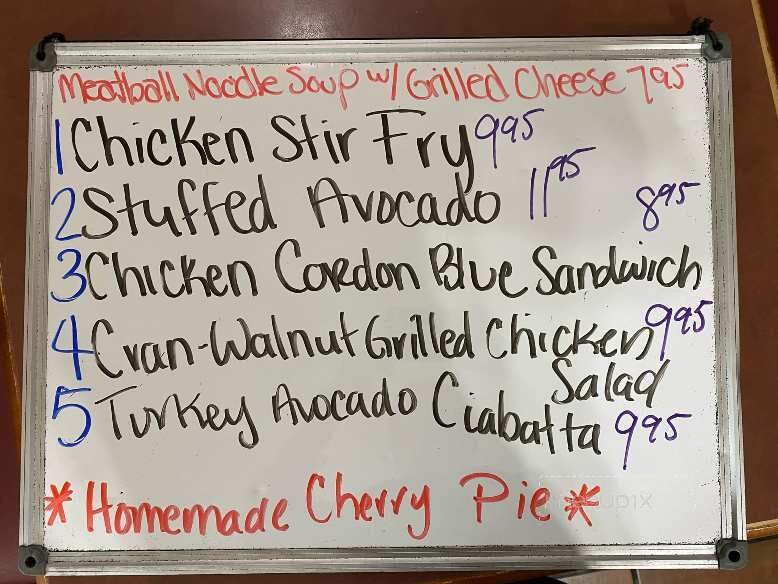 Meatball Noodle Soup w/ Grilled Cheese 795
1 Chicken Stir Fry 995
2 Stuffed Avocado 1195
895
3 Chicken Cordon Blue Sandwich
4 Cran-Walnut Grilled Chicken 995
Salad
5 Turkey Avocado Ciabatta 995
*Homemade Cherry Pie*